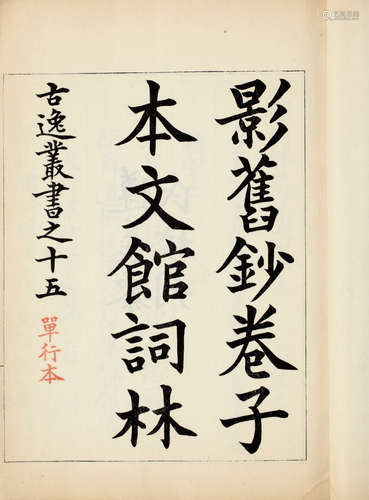 影舊鈔卷子
本文館詞林
古逸叢書之十五 單行本